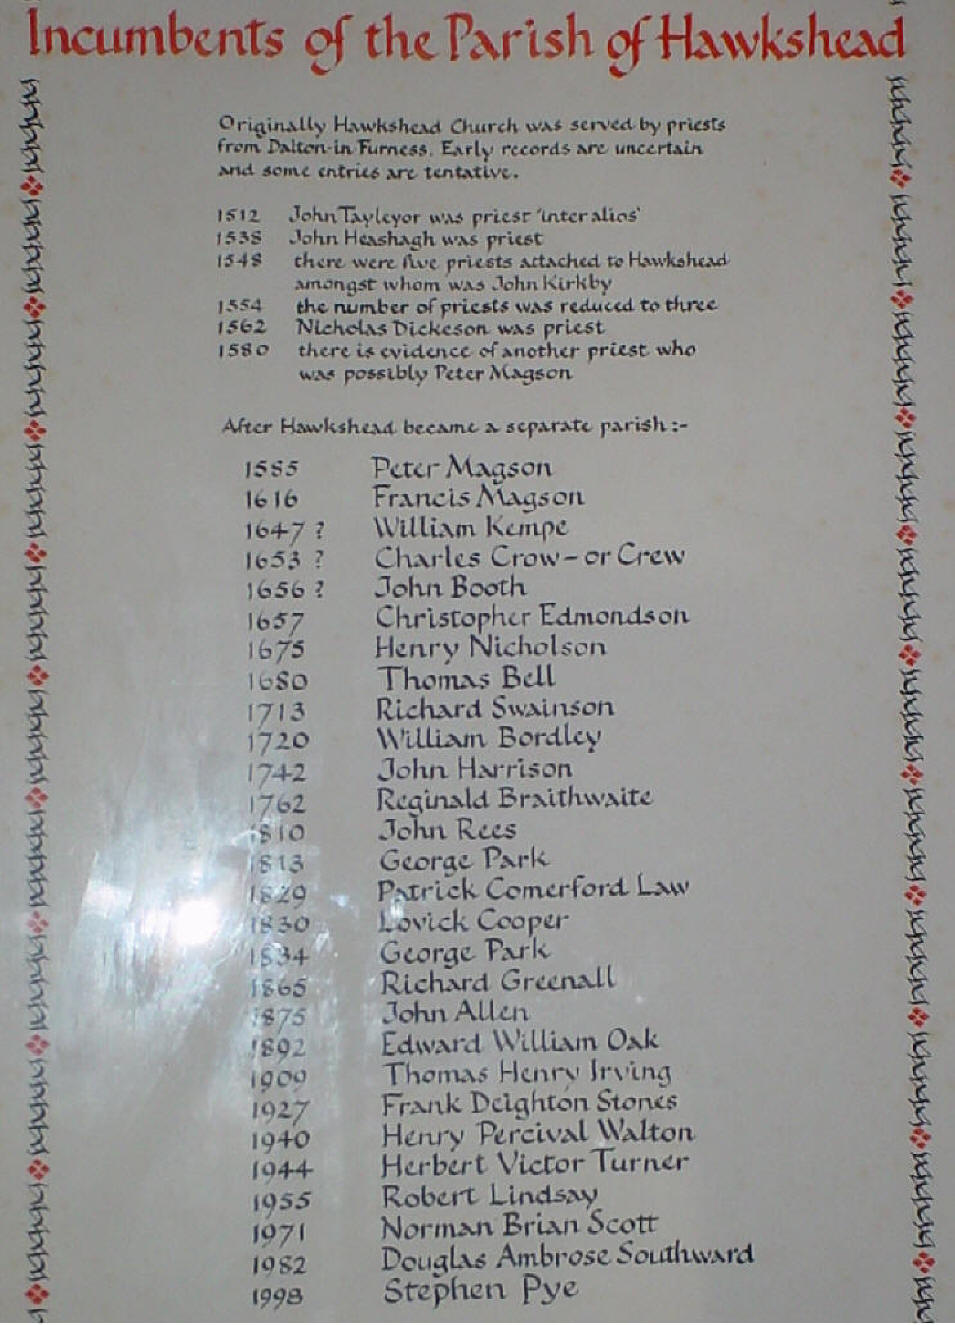 Incumbents of the Parish of Hawkshead
Originally Hawkshead Church was served by priests
from Dalton-in Furness. Early records are uncertain
and some entries are tentative.
1512 John Tayleyor was priest 'inter alios'
1538 John Heashagh was priest
1548 there were five priests attached to Hawkshead
amongst whom was John Kirkby
1554 the number of priests was reduced to three
1562 Nicholas Dickeson was priest
1580 there is evidence of another priest who
was possibly Peter Magson
After Hawkshead became a separate parish :-
1585 Peter Magson
1616 Francis Magson
1647 ? William Kempe
1653 ? Charles Crow - or Crew
1656 ? John Booth
1657 Christopher Edmondson
1675 Henry Nicholson
1680 Thomas Bell
1713 Richard Swainson
1720 William Bordley
1742 John Harrison
1762 Reginald Braithwaite
1810 John Rees
1813 George Park
1829 Patrick Comerford Law
1830 Lovick Cooper
1834 George Park
1865 Richard Greenall
1875 John Allen
1892 Edward William Oak
1909 Thomas Henry Irving
1927 Frank Deighton Stones
1940 Henry Percival Walton
1944 Herbert Victor Turner
1955 Robert Lindsay
1971 Norman Brian Scott
1982 Douglas Ambrose Southward
1998 Stephen Pye